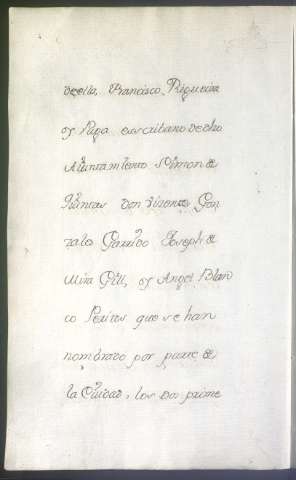 de ella, Francisco Rigueira
y Puga escribano de dho
Aiuntamiento Simon de
Don Vicente Gon
zalo Garrido Joseph de
Mira Gill, y Angel Blan
co Peritos que se han
nombrado por parte de
la Ciudad, los dos prime